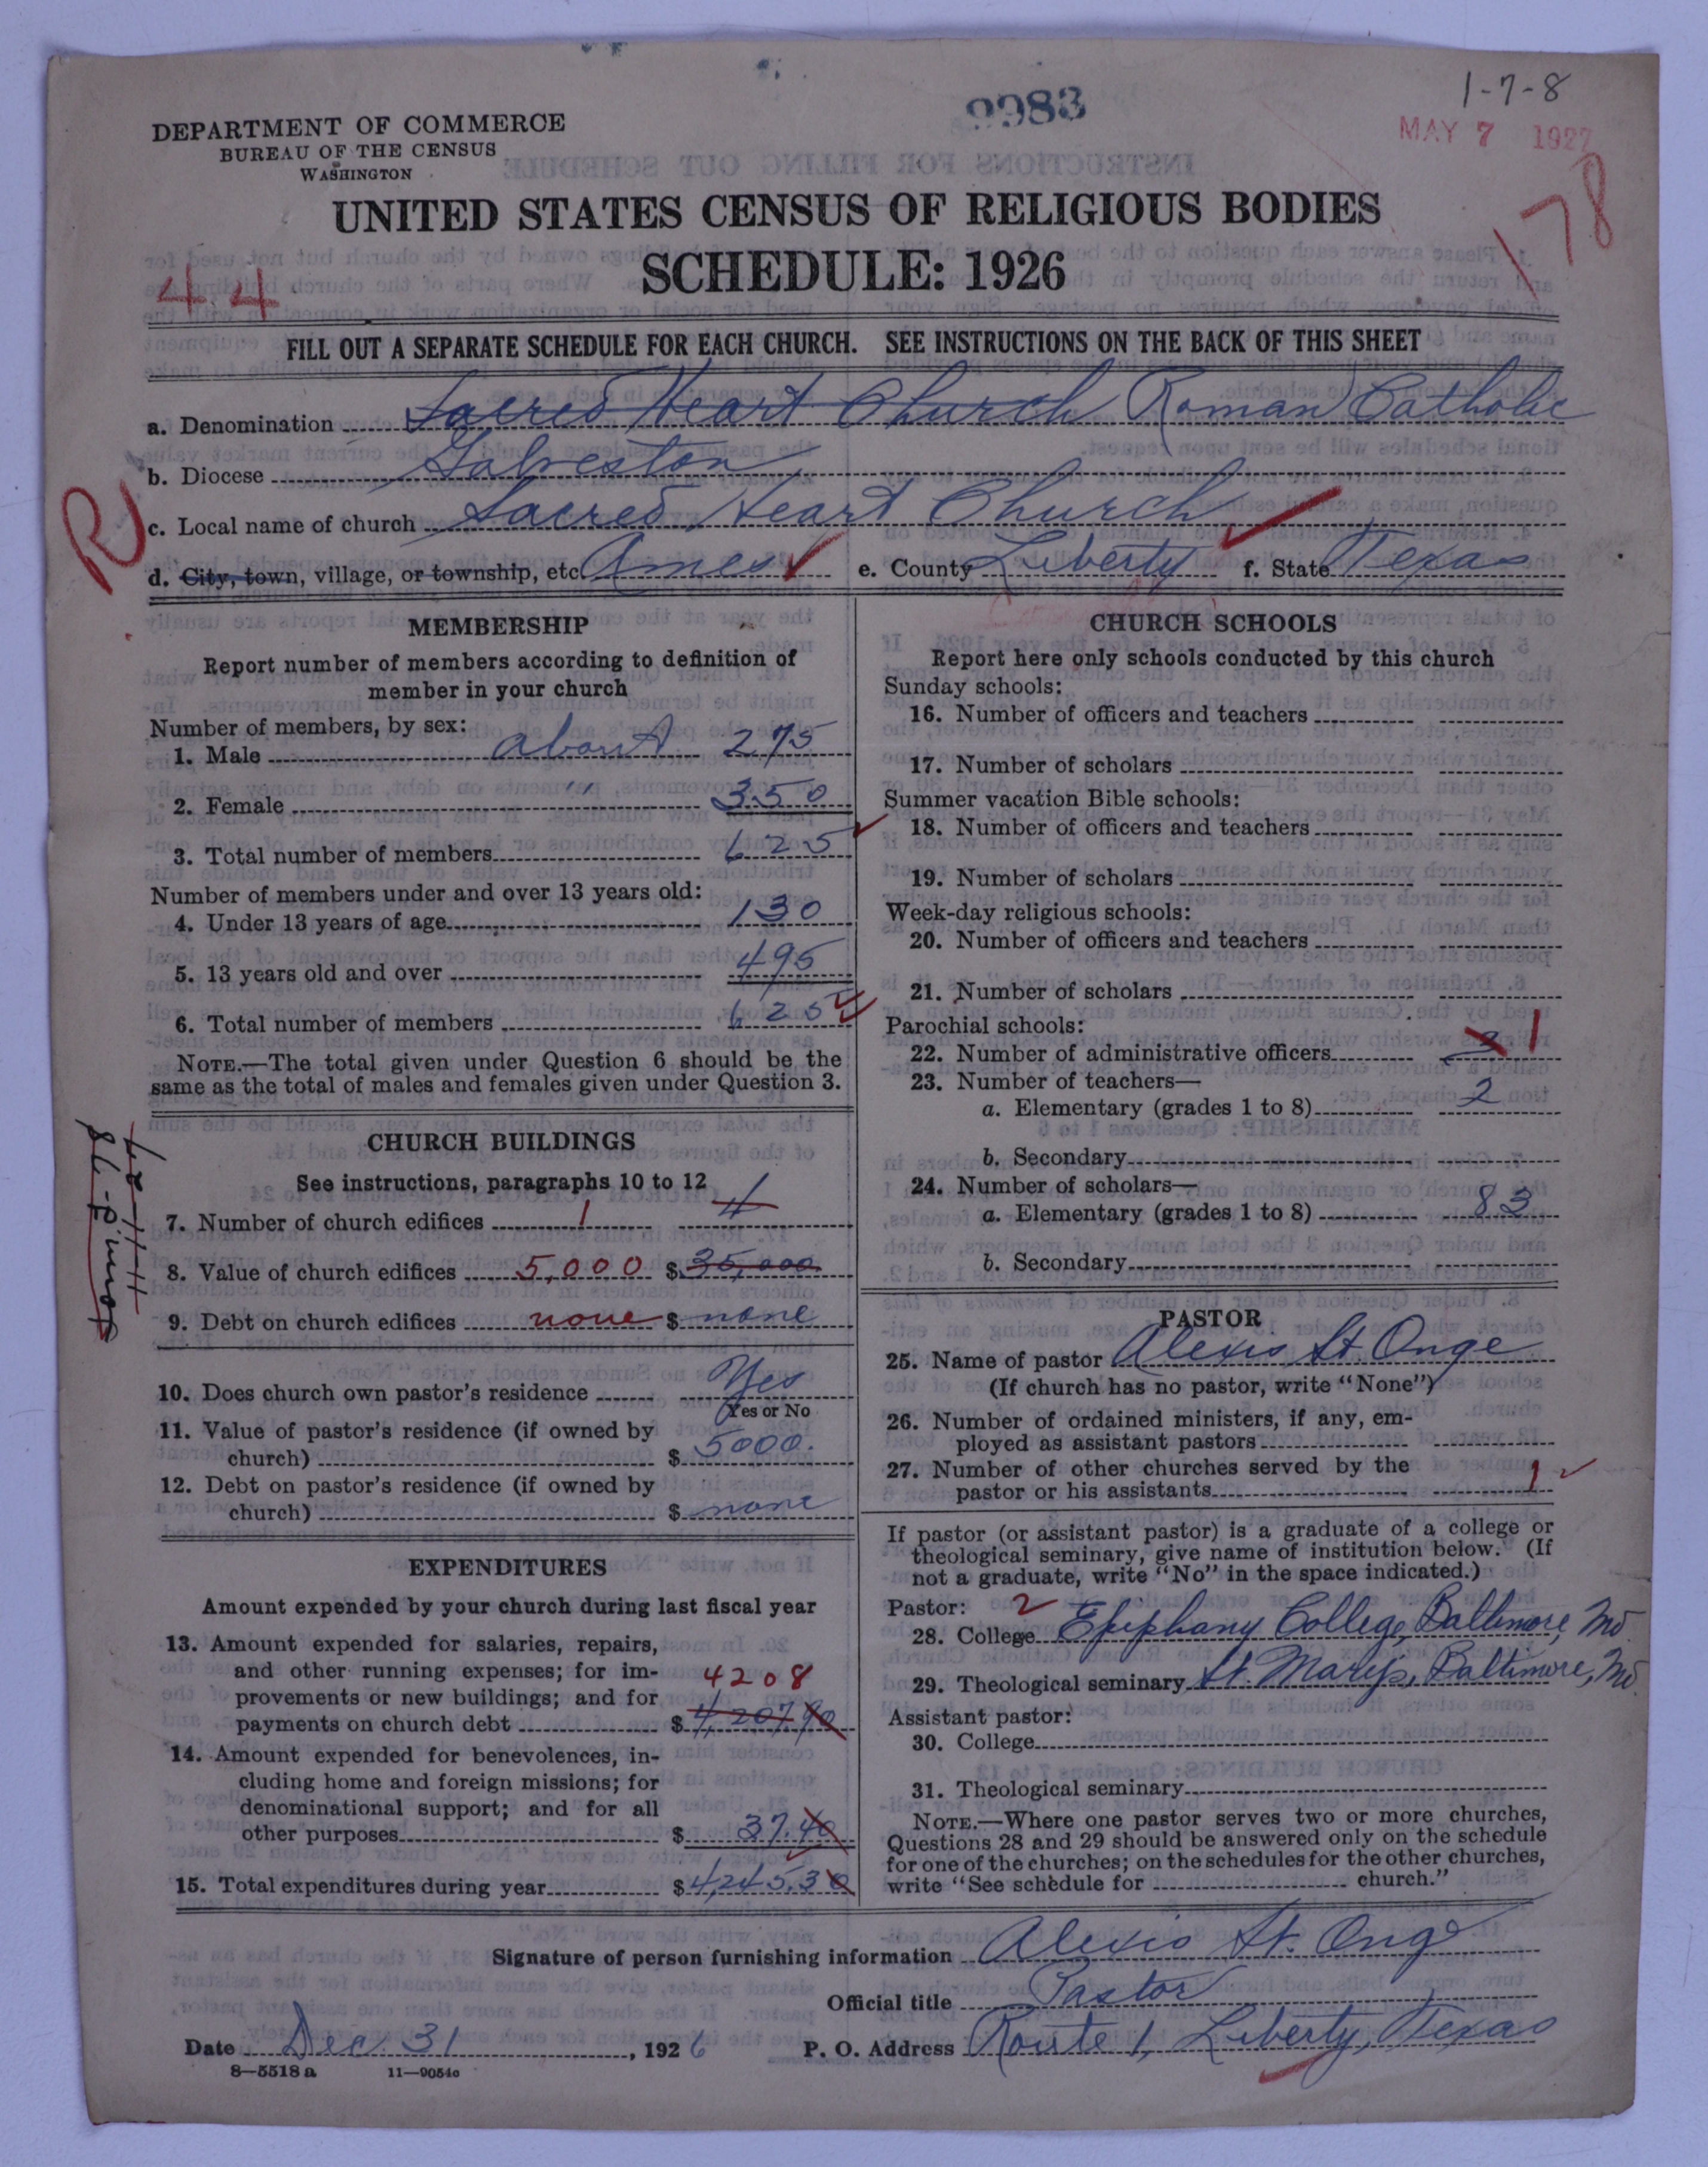 1-7-8
9983
MAY 7 1927
DEPARTMENT OF COMMERCE
BUREAU OF THE CENSUS
WASHINGTON
178
UNITED STATES CENSUS OF RELIGIOUS BODIES
SCHEDULE: 1926
44
FILL OUT A SEPARATE SCHEDULE FOR EACH CHURCH. SEE INSTRUCTIONS ON THE BACK OF THIS SHEET
a. Denomination Sacred Heart Church Roman Catholic
b. Diocese Galveston
R
c. Local name of church Sacred Heart Church
d. City, town, village, or township, etc. Ames e. County Liberty f. State Texas
MEMBERSHIP
Report number of members according to definition of
member in your church
Number of members, by sex:
1. Male about 275
2. Female " 350
3. Total number of members 625
Number of members under and over 13 years old:
4. Under 13 years of age 130
5. 13 years old and over 495
6. Total number of members 625
NOTE.—The total given under Question 6 should be the
same as the total of males and females given under Question 3.
CHURCH BUILDINGS
See instructions, paragraphs 10 to 12
7. Number of church edifices 1 4
8. Value of church edifices 5,000 $ 35,000
9. Debt on church edifices none $ none
10. Does church own pastor's residence Yes
Yes or No
11. Value of pastor's residence (if owned by
church) $ 5000.
12. Debt on pastor's residence (if owned by
church) $ none
EXPENDITURES
Amount expended by your church during last fiscal year
13. Amount expended for salaries, repairs,
and other running expenses; for im-
provements or new buildings; and for
payments on church debt $ 4,207.90
4208
14. Amount expended for benevolences, in-
cluding home and foreign missions; for
denominational support; and for all
other purposes $ 37.40
15. Total expenditures during year $ 4,245.30
CHURCH SCHOOLS
Report here only schools conducted by this church
Sunday schools:
16. Number of officers and teachers
17. Number of scholars
Summer vacation Bible schools:
18. Number of officers and teachers
19. Number of scholars
Week-day religious schools:
20. Number of officers and teachers
21. Number of scholars
Parochial schools:
22. Number of administrative officers 1
23. Number of teachers—
a. Elementary (grades 1 to 8) 2
b. Secondary
24. Number of scholars—
a. Elementary (grades 1 to 8) 83
b. Secondary
PASTOR
25. Name of pastor Alexis St. Onge
(If church has no pastor, write "None")
26. Number of ordained ministers, if any, em-
ployed as assistant pastors
27. Number of other churches served by the
pastor or his assistants 1
If pastor (or assistant pastor) is a graduate of a college or
theological seminary, give name of institution below. (If
not a graduate, write "No" in the space indicated.)
Pastor: 2
28. College Epiphany College, Baltimore, Md
29. Theological seminary St. Mary's, Baltimore, Md.
Assistant pastor:
30. College
31. Theological seminary
NOTE.—Where one pastor serves two or more churches,
Questions 28 and 29 should be answered only on the schedule
for one of the churches; on the schedules for the other churches,
write "See schedule for church."
Signature of person furnishing information Alexis St. Onge
Official title Pastor
Date Dec. 31, 1926 P. O. Address Route 1, Liberty, Texas
8—5518 a 11—9054c